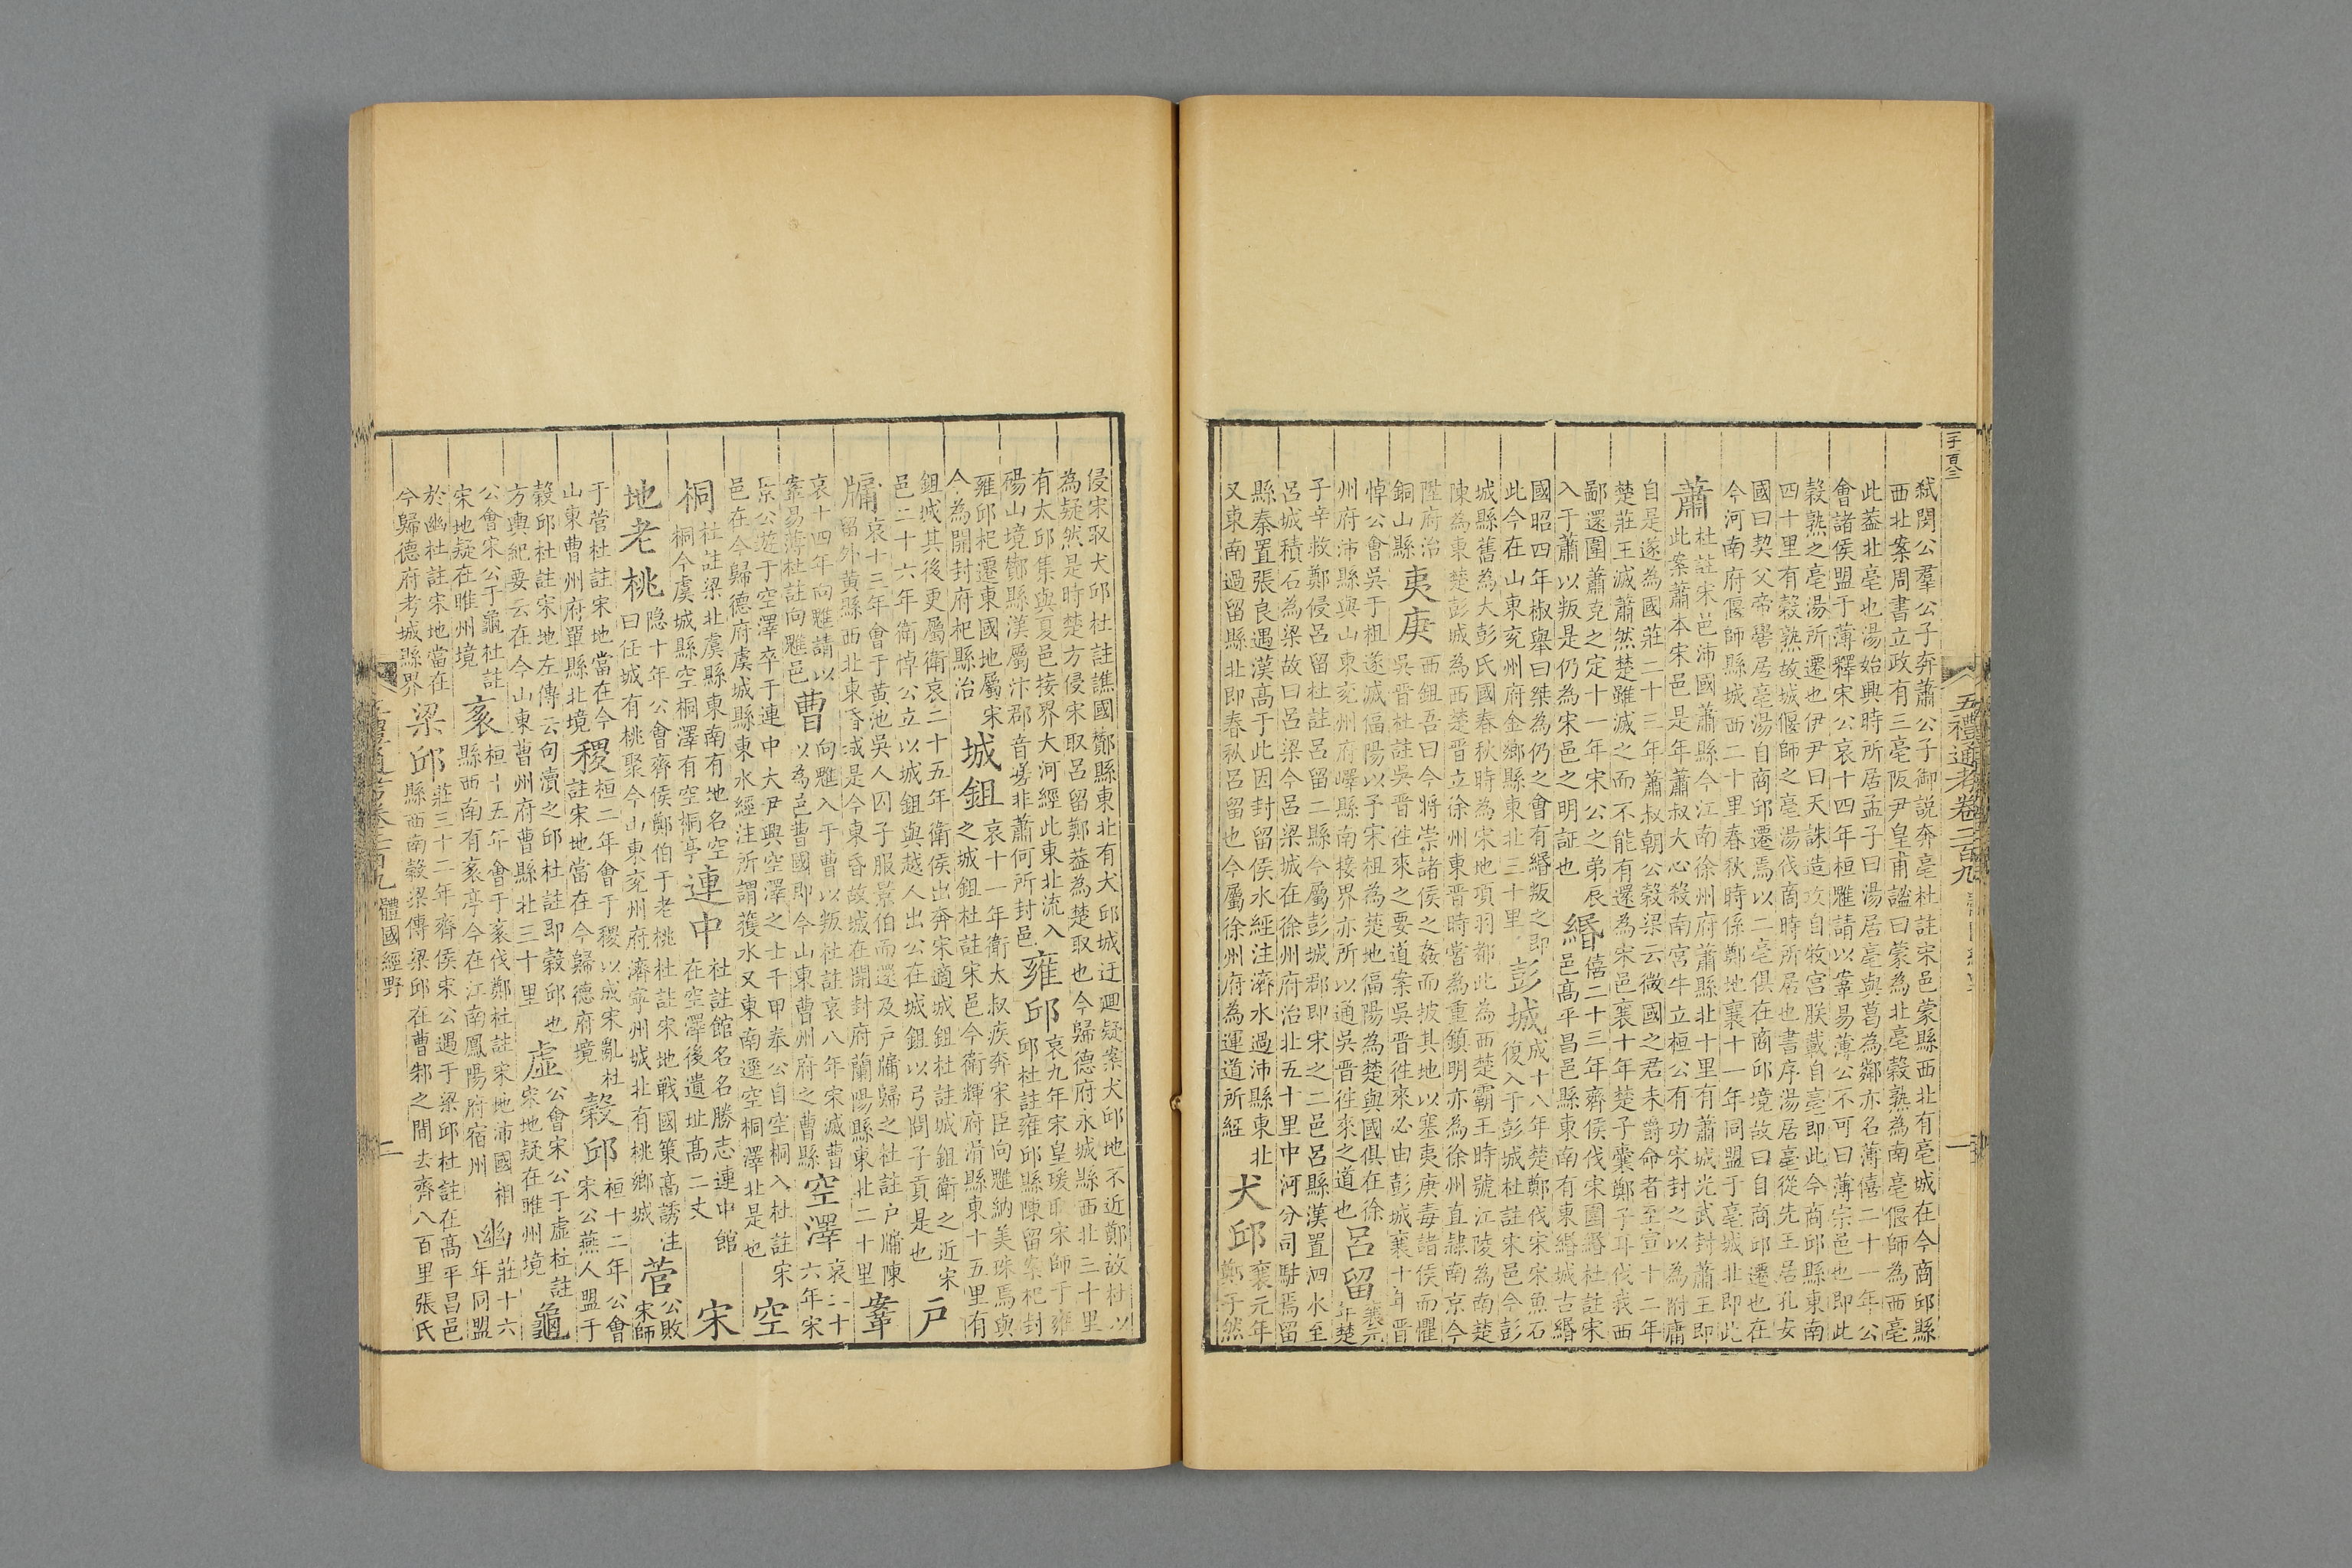 弑閔公羣公子奔蕭公子御説奔亳杜註宋邑蒙縣西北有亳城在今商邱縣
西北案周書立政有三亳阪尹皇甫謐曰蒙為北亳穀熟為南亳偃師為西亳
此葢北亳也湯始興時所居孟子曰湯居亳與葛為鄰亦名薄僖二十一年公
會諸侯盟于薄釋宋公哀十四年桓魋請以鞌易薄公不可曰薄宗邑也即此
穀熟之亳湯所遷也伊尹曰天誅造攻自牧宮朕載自亳即此今商邱縣東南
四十里有穀熟故城偃師之亳湯伐商時所居也書序湯居亳從先王居孔安
國曰契父帝嚳居亳湯自商邱遷焉以二亳俱在商邱境故曰自商邱遷也在
今河南府偃師縣城西二十里春秋時係鄭地襄十一年同盟于亳城北即此
蕭 杜註宋邑沛國蕭縣今江南徐州府蕭縣北十里有蕭城光武封蕭王即
此案蕭本宋邑是年蕭叔大心殺南宮牛立桓公有功宋封之以為附庸
自是遂為國莊二十三年蕭叔朝公穀梁云微國之君未爵命者至宣十二年
楚莊王滅蕭然楚雖滅之而不能有還為宋邑襄十年楚子囊鄭子耳伐我西
鄙還圍蕭克之定十一年宋公之弟辰
入于蕭以叛是仍為宋邑之明証也
緡 僖二十三年齊侯伐宋圍緡杜註宋
邑高平昌邑縣東南有東緡城古緡
國昭四年椒舉曰桀為仍之會有緡叛之即
此今在山東兖州府金鄉縣東北三十里
彭城 成十八年楚鄭伐宋宋魚石
復入于彭城杜註宋邑今彭
城縣舊為大彭氏國春秋時為宋地項羽都此為西楚霸王時號江陵為南楚
陳為東楚彭城為西楚晋立徐州東晋時當為重鎮明亦為徐州直隸南京今
陞府治
銅山縣
夷庚 西鉏吾曰今將崇諸侯之姦而披其地以塞夷庚毒諸侯而懼
吳晋杜註吳晋徃來之要道案吳晋徃來必由彭城襄十年晋
悼公會吳于柤遂滅偪陽以予宋柤為楚地偪陽為楚與國俱在徐
州府沛縣與山東兖州府嶧縣南接界亦所以通吳晋徃來之道也
呂留 襄元
年楚
子辛救鄭侵呂留杜註呂留二縣今屬彭城郡即宋之二邑呂縣漢置泗水至
呂城積石為梁故曰呂梁今呂梁城在徐州府治北五十里中河分司駐焉留
縣秦置張良遇漢高于此因封留侯水經注濟水過沛縣東北
又東南過留縣北即春秋呂留也今屬徐州府為運道所經
犬邱 襄元年
鄭子然
侵宋取犬邱杜註譙國酇縣東北有犬邱城迂廻疑案犬邱地不近鄭故杜以
為疑然是時楚方侵宋取呂留鄭葢為楚取也今歸德府永城縣西北三十里
有太邱集與夏邑接界大河經此東北流入
碭山境酇縣漢屬沛郡音嵯非蕭何所封邑
雍邱 哀九年宋皇瑗取宋師于雍
邱杜註雍邱縣陳留案杞封
雍邱杞遷東國地屬宋
今為開封府杞縣治
城鉏 哀十一年衛太叔疾奔宋臣向魋納美珠焉與
之城鉏杜註宋邑今衛輝府滑縣東十五里有
鉏城其後更屬衛哀二十五年衛侯出奔宋適城鉏杜註城鉏衛之近宋
邑二十六年衛悼公立以城鉏與越人出公在城鉏以弓問子貢是也
戶
牖 哀十三年會于黃池吳人囚子服景伯而還及戶牖歸之杜註戶牖陳
留外黃縣西北東昏城是今東昏故城在開封府蘭陽縣東北二十里
鞌
哀十四年向魋請以
鞌易薄杜註向魋邑
曹 向魋入于曹以叛杜註哀八年宋滅曹
以為邑曹國即今山東曹州府之曹縣
空澤 哀二十
六年宋
景公遊于空澤卒于連中大尹興空澤之士千甲奉公自空桐入杜註宋
邑在今歸德府虞城縣東水經注所謂獲水又東南逕空桐澤北是也
空
桐 杜註梁北虞縣東南有地名空
桐今虞城縣空桐澤有空桐亭
連中 杜註館名名勝志連中館
在空澤後遺址高二丈
宋
地老桃 隐十年公會齊侯鄭伯于老桃杜註宋地戰國策高誘注
曰任城有桃聚今山東兖州府濟寧州城北有桃鄉城
菅 公敗
宋師
于菅杜註宋地當在今
山東曹州府單縣北境
稷 桓二年會于稷以成宋亂杜
註宋地當在今歸德府境
穀邱 桓十二年公會
宋公燕人盟于
穀邱杜註宋地左傳云句瀆之邱杜註即穀邱也
方輿紀要云在今山東曹州府曹縣北三十里
虛 公會宋公于虛杜註
宋地疑在睢州境
龜
公會宋公于龜杜註
宋地疑在睢州境
袲 桓十五年會于袲伐鄭杜註宋地沛國相
縣西南有袲亭今在江南鳳陽府宿州
幽 莊十六
年同盟
於幽杜註宋地當在
今歸德府考城縣界
梁邱 莊三十二年齊侯宋公遇于梁邱杜註在高平昌邑
縣西南穀梁傳梁邱在曹邾之間去齊八百里張氏
五禮通考卷二百九
體國經野
二